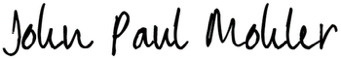 John Paul Mohler